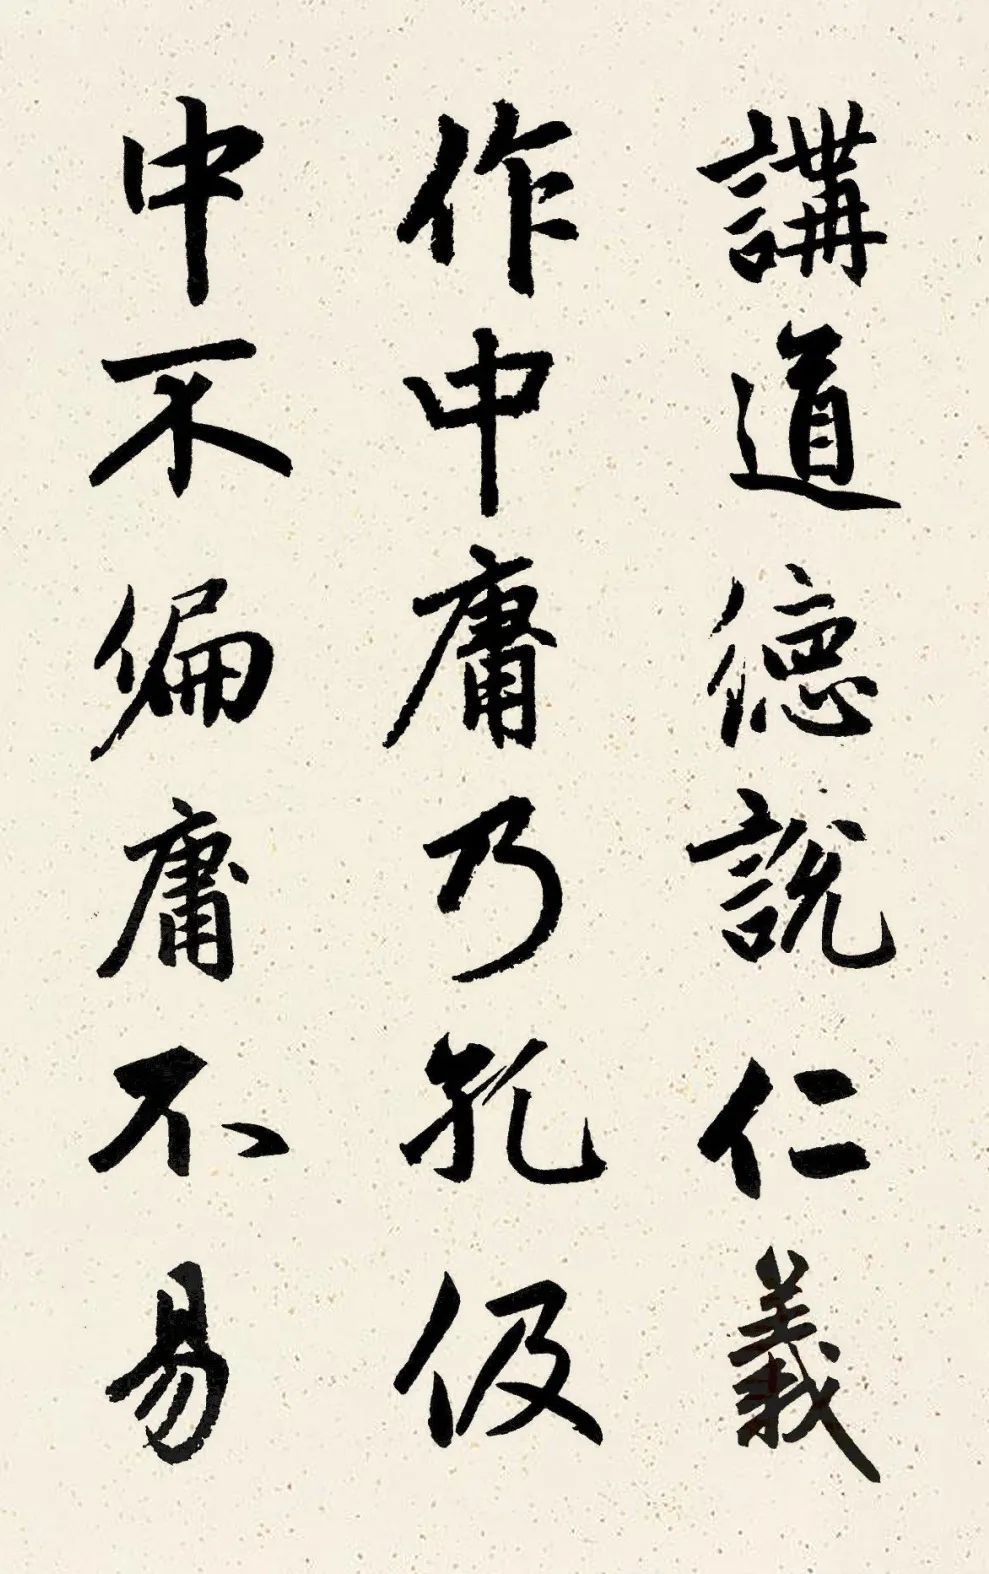 講道德說仁義
作中庸乃孔伋
中不偏庸不易